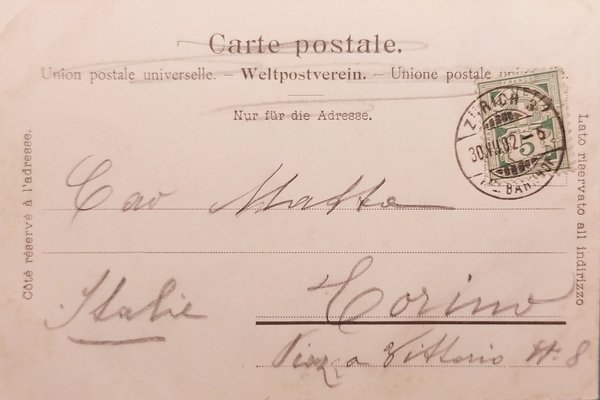 Carte postale.
Union postale universelle. – Weltpostverein. – Unione postale
Nur für die Adresse.
Côté réservé à l'adresse.
Lato riservato all indirizzo
ZÜRICH
30.VII.02-5
5
Cav Matta
Italie
Torino
Piazza Vittorio N. 8